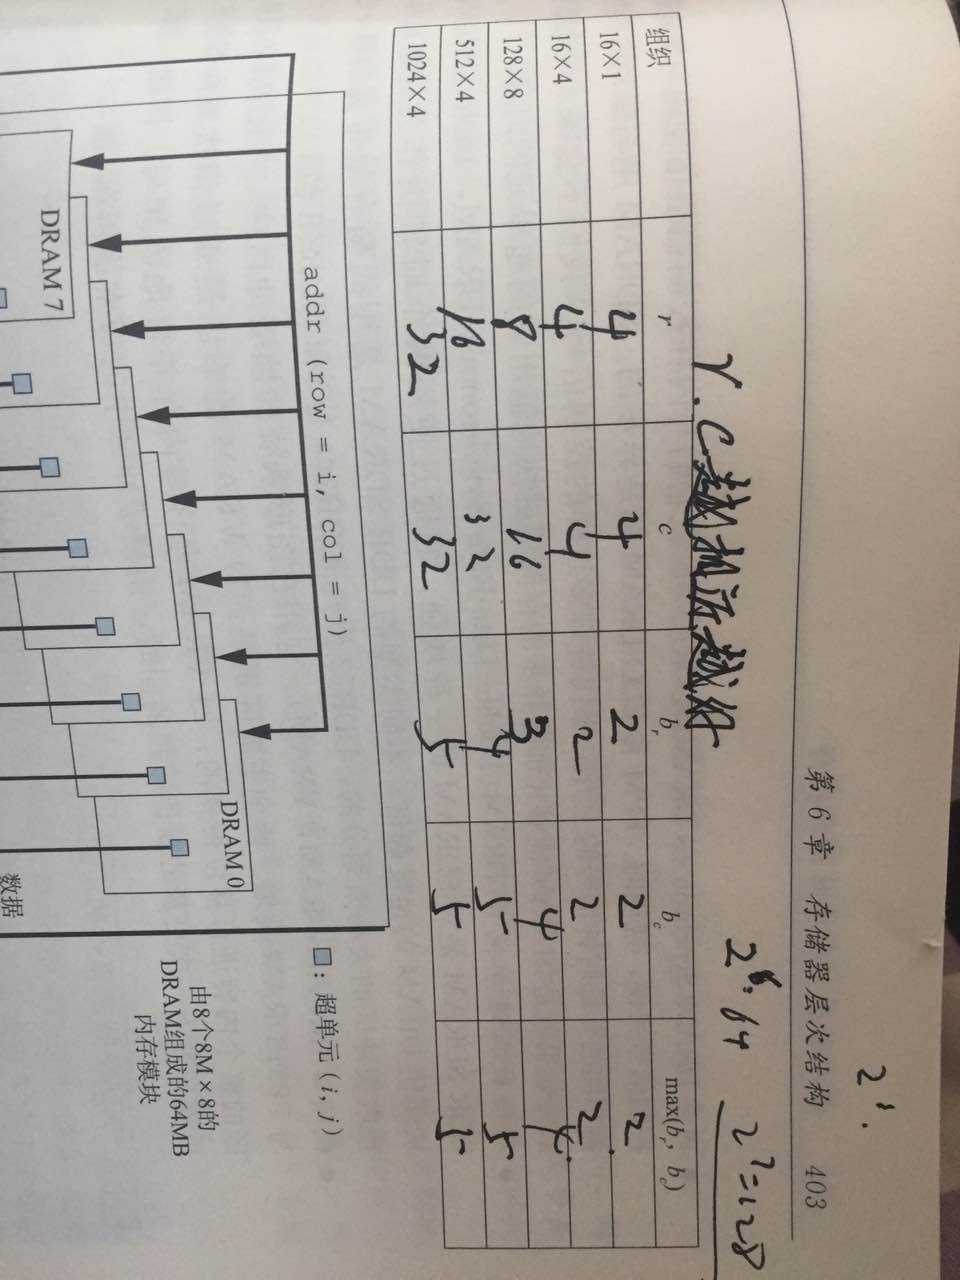 2⁸.
第6章 存储器层次结构 403
r.c越接近越好 2⁶:64 2⁷=128
组织 r c bᵣ b꜀ max(bᵣ, b꜀)
16×1 4 4 2 2 2
16×4 4 4 2 2 2
128×8 8 16 3 4 4
512×4 16 32 4 5 5
1024×4 32 32 5 5 5
addr (row = i, col = j)
:超单元(i, j)
DRAM 7
DRAM 0
由8个8M×8的
DRAM组成的64MB
内存模块
数据